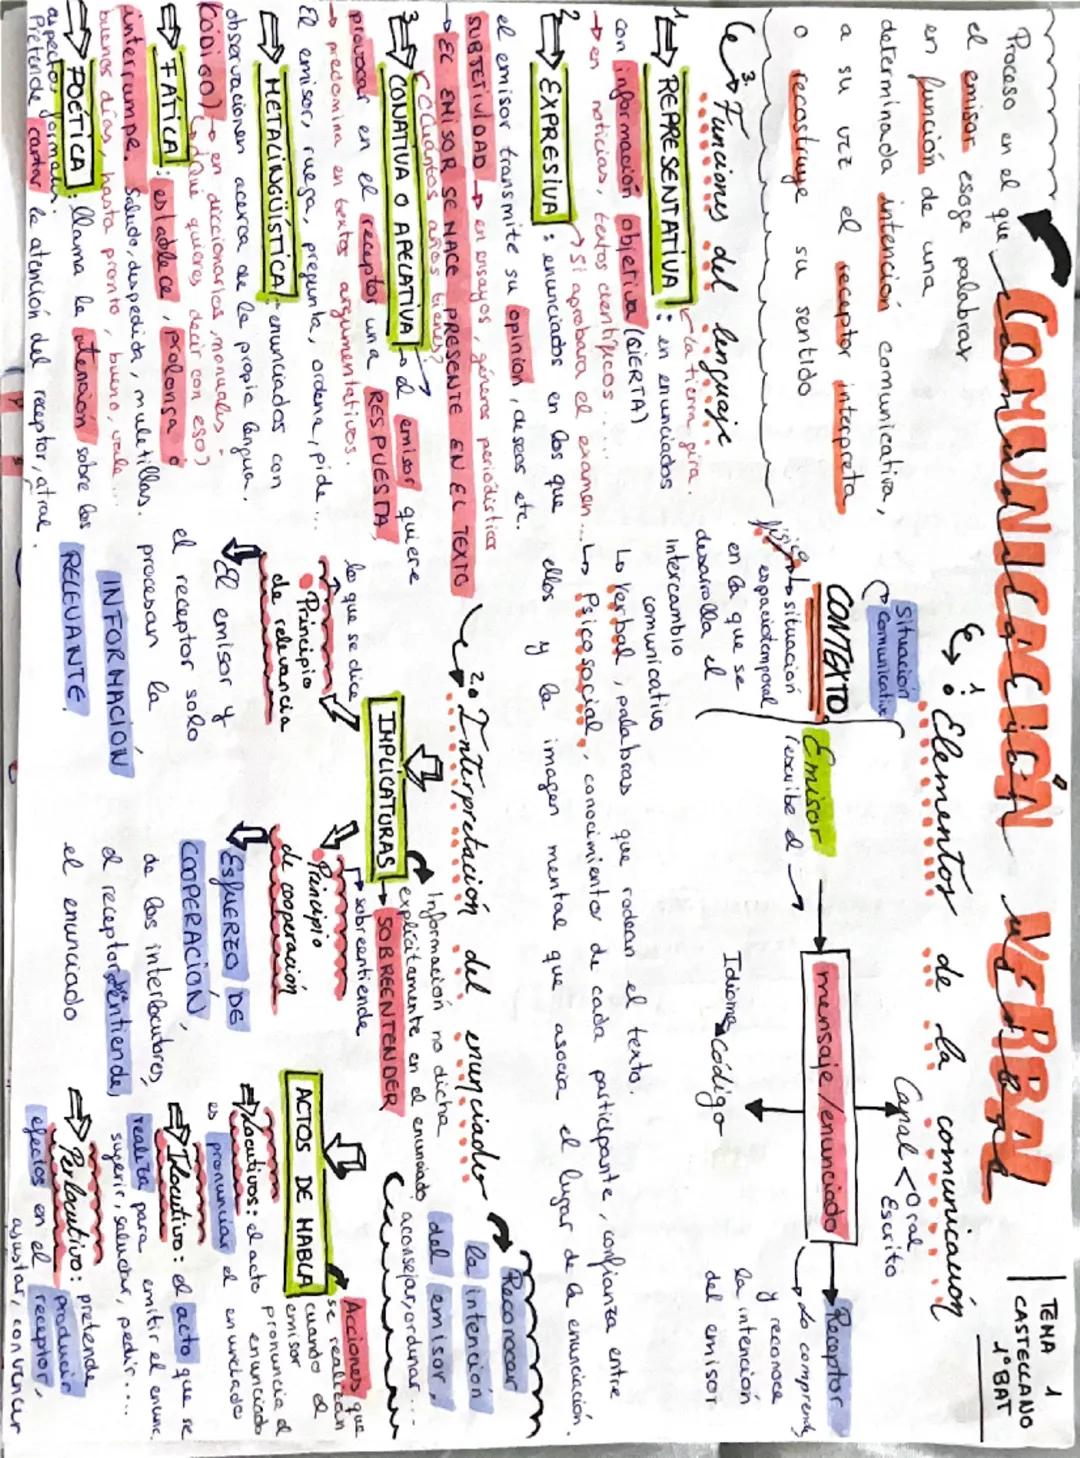 COMUNICACIÓN VERBAL
comunicación verbal
TEMA 1
CASTELLANO
1º BAT
Proceso en el que
el emisor esoge palabras
en función de una
determinada intención comunicativa,
a su vez el receptor interpreta
o recostruye su sentido
1. Elementos de la comunicación
Situación
comunicativa
CONTEXTO
Emisor
escribe el
mensaje/enunciado
Canal < Oral
Escrito
Idioma código
Receptor
Lo comprende
y reconoce
la intención
del emisor
física situación
espaciotemporal
en la que se
desarrolla el
intercambio
comunicativo
Verbal, palabras que rodean el texto.
Psicosocial, conocimientos de cada participante, confianza entre
ellos y la imagen mental que asocia el lugar de la enunciación.
3. Funciones del lenguaje
1 ⇒ REPRESENTATIVA: en enunciados
La tierra gira.
con información objetiva (CIERTA)
→ en noticias, textos científicos...
2 ⇒ EXPRESIVA: enunciados en los que
Si aprobara el examen...
el emisor transmite su opinión, deseos etc.
SUBJETIVIDAD → en ensayos, géneros periodísticos
→ EL EMISOR SE HACE PRESENTE EN EL TEXTO
¿Cuántos años tienes?
3 ⇒ CONATIVA O APELATIVA → el emisor quiere
provocar en el receptor una RESPUESTA,
→ predomina en textos argumentativos.
El emisor, ruega, pregunta, ordena, pide...
⇒ METALINGÜÍSTICA: enunciados con
observaciones acerca de la propia lengua,
(código) → en diccionarios, manuales
¿Qué quieres decir con eso?
⇒ FÁTICA: establece, prolonga o
interrumpe. Saludo, despedida, muletillas.
buenos días, hasta pronto, bueno, vale...
⇒ POÉTICA: llama la atención sobre los
aspectos formales.
Pretende captar la atención del receptor, atrae.
2. Interpretación del enunciado
Reconocer
la intención
del emisor,
aconsejar, ordenar...
IMPLICATURAS
Información no dicha
explícitamente en el enunciado,
→ SOBREENTENDER
lo que se dice
sobreentiende
• Principio
de relevancia
El emisor y
el receptor solo
procesan la
INFORMACIÓN
RELEVANTE
• Principio
de cooperación
ESFUERZO DE
COOPERACIÓN,
de los interlocutores,
el receptor entiende
el enunciado
ACTOS DE HABLA
Acciones que
se realizan
cuando el
emisor
pronuncia el
enunciado
⇒ Locutivos: el acto
es pronunciar el enunciado
⇒ Ilocutivo: el acto que se
realiza para emitir el enunc.
sugerir, saludar, pedir...
⇒ Perlocutivo: pretende
producir
efectos en el receptor,
asustar, convencer